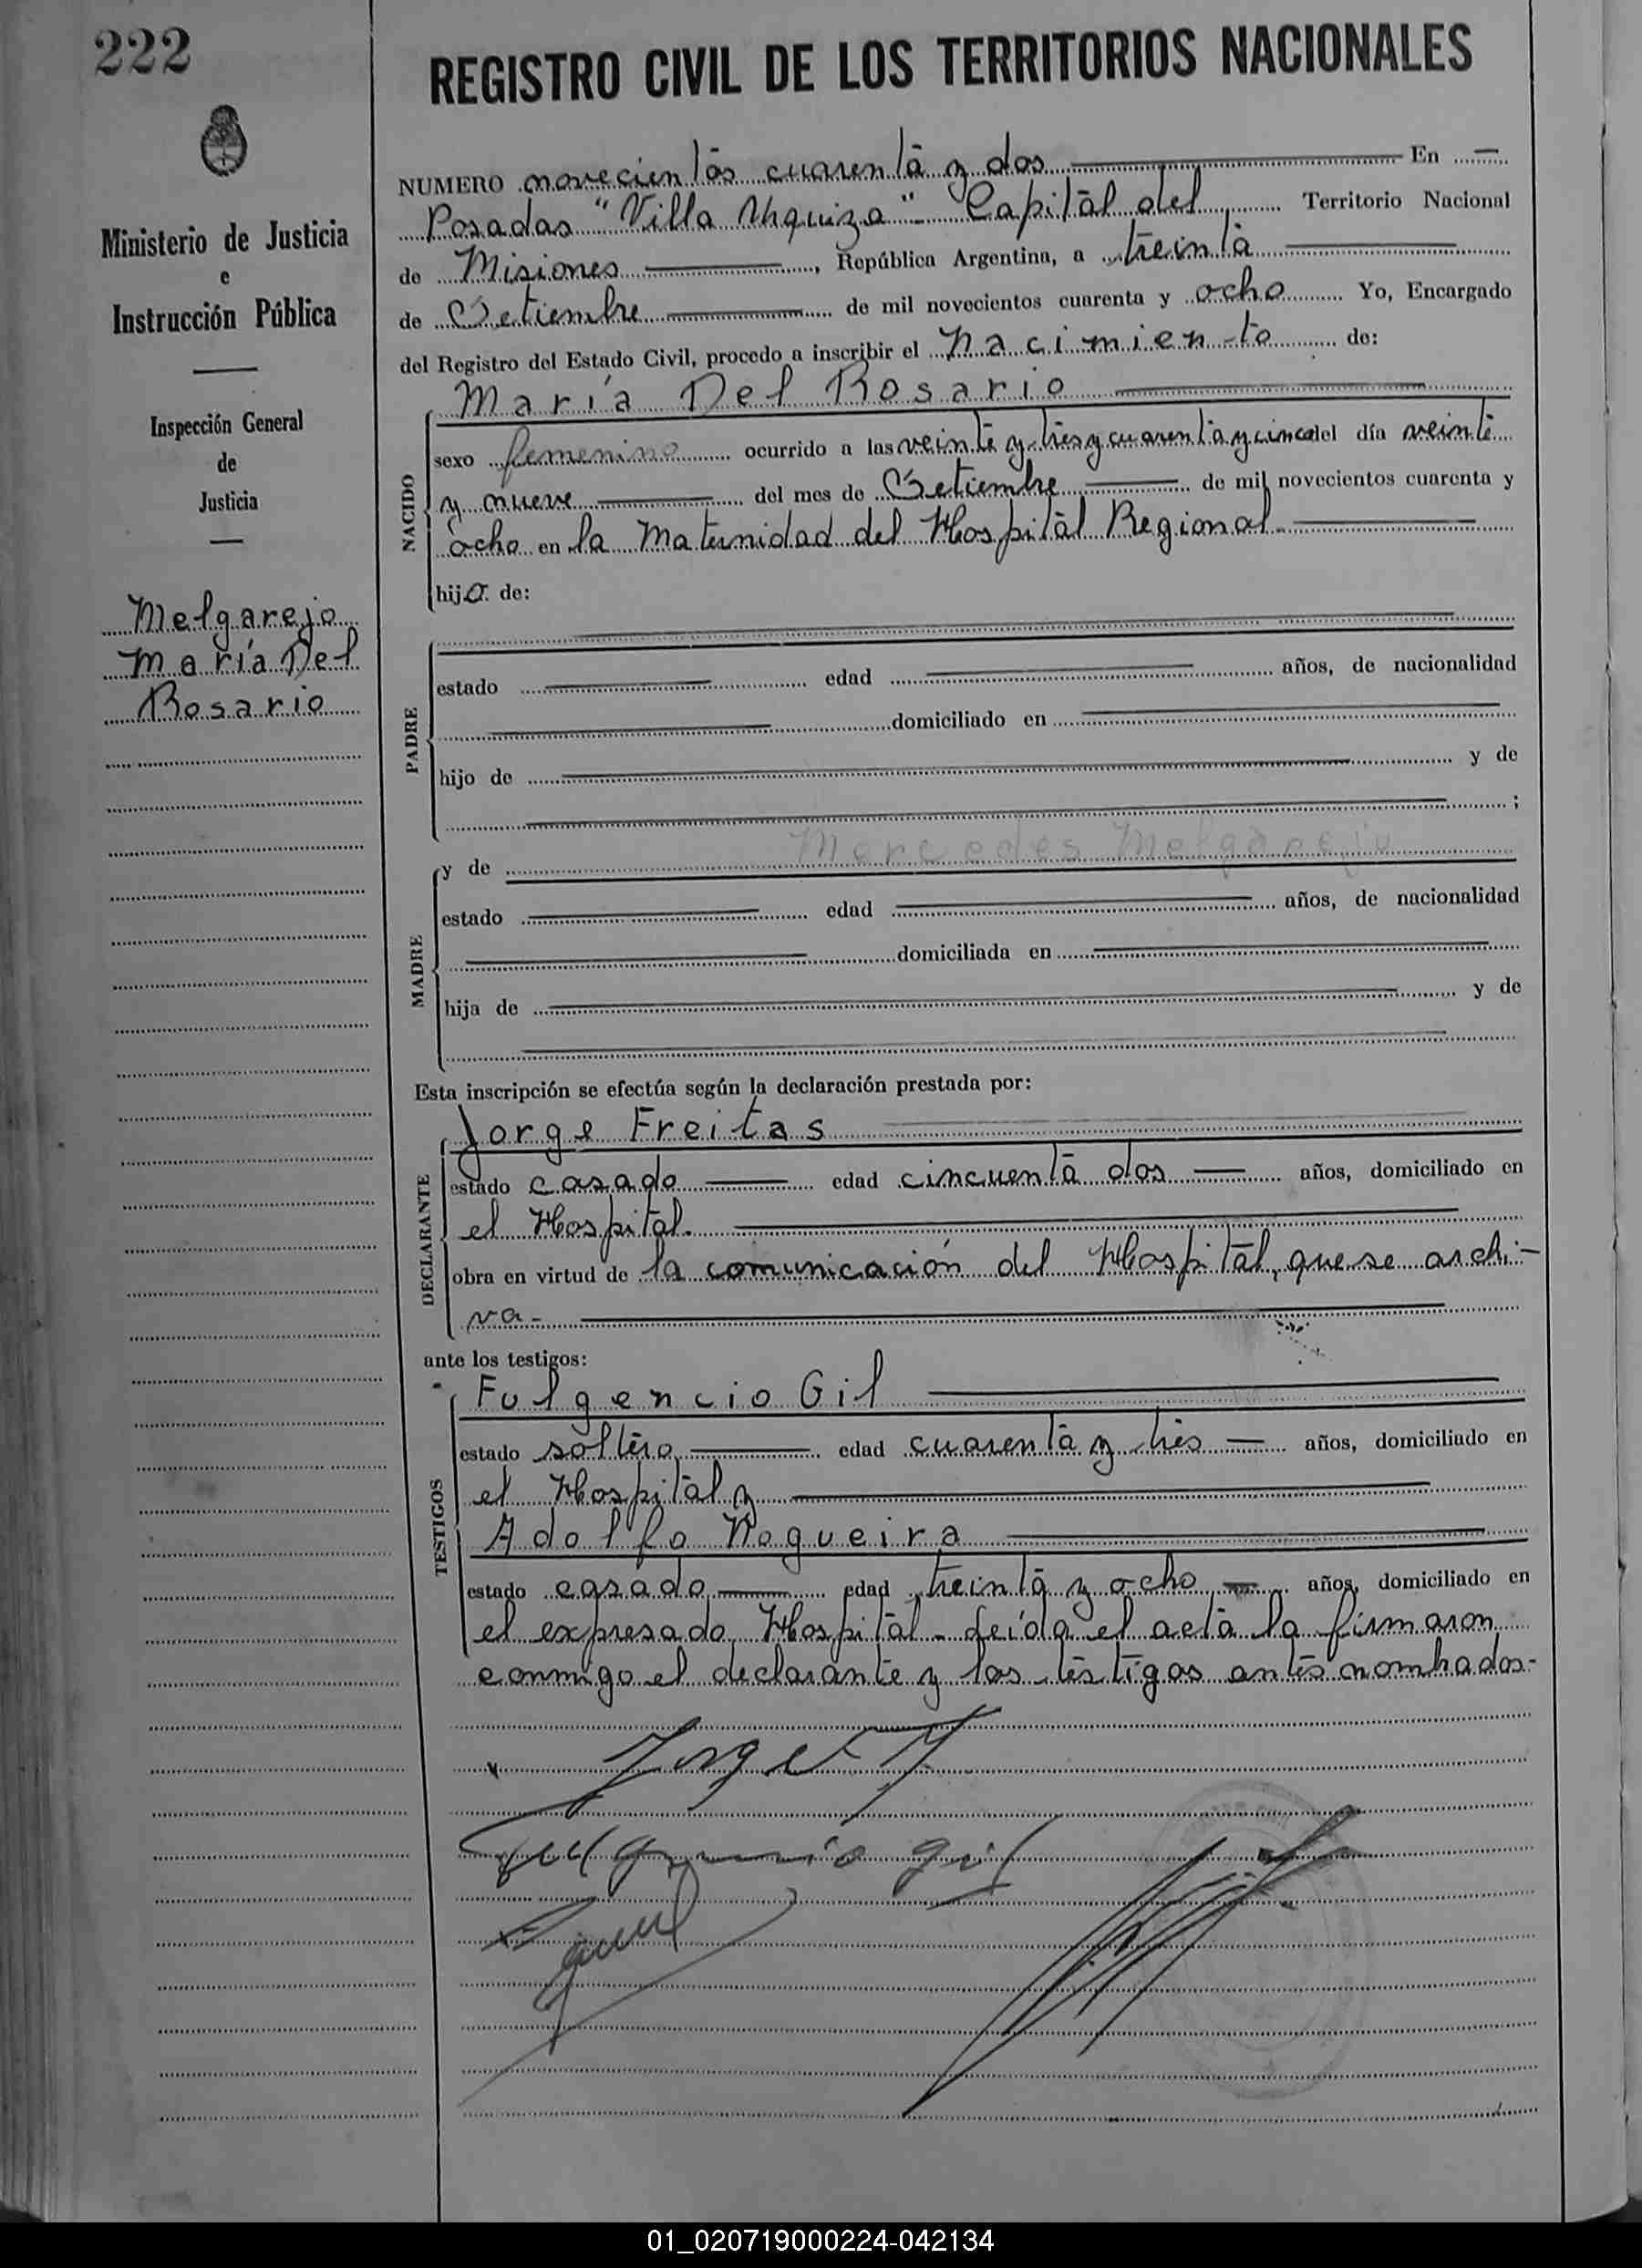 222
REGISTRO CIVIL DE LOS TERRITORIOS NACIONALES
Ministerio de Justicia
e
Instrucción Pública
Inspección General
de
Justicia
Melgarejo
María Del
Rosario
NUMERO novecientos cuarenta y dos En
Posadas "Villa Urquiza" - Capital del Territorio Nacional
de Misiones, República Argentina, a treinta
de Setiembre de mil novecientos cuarenta y ocho Yo, Encargado
del Registro del Estado Civil, procedo a inscribir el nacimiento de:
María Del Rosario
NACIDO
sexo femenino ocurrido a las veinte y tres y cuarenta y cinco del día veinte
y nueve del mes de Setiembre de mil novecientos cuarenta y
ocho en la Maternidad del Hospital Regional
hija de:
PADRE
estado edad años, de nacionalidad
domiciliado en
hijo de y de
;
MADRE
y de Mercedes Melgarejo
estado edad años, de nacionalidad
domiciliada en
hija de y de
Esta inscripción se efectúa según la declaración prestada por:
DECLARANTE
Jorge Freitas
estado casado edad cincuenta dos años, domiciliado en
el Hospital.
obra en virtud de la comunicación del Hospital, que se archi-
va-
ante los testigos:
TESTIGOS
Fulgencio Gil
estado soltero edad cuarenta y tres años, domiciliado en
el Hospital y
Adolfo Nogueira
estado casado edad treinta y ocho años, domiciliado en
el expresado Hospital - Leída el acta la firmaron
conmigo el declarante y los testigos antes nombrados-
Jorge F
Fulgencio Gil
01_020719000224-042134